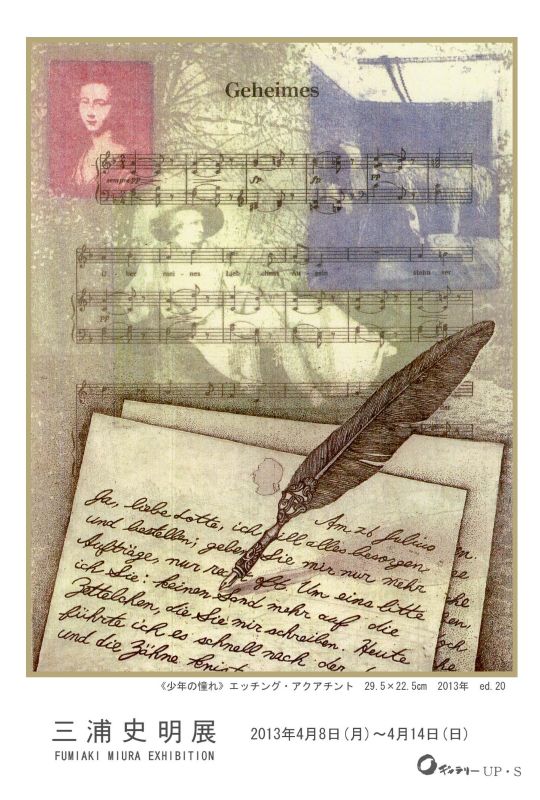 Geheimes
sempre pp
fp
fp
pp
U - ber mei - nes Lieb - chens Äu - geln stehn ver
pp
Am 26 Julius
Ja, liebe Lotte, ich will alles besorgen
und bestellen; geben Sie mir nur mehr
Aufträge, nur recht oft. Um eins bitte
ich Sie: keinen Sand mehr auf die
Zettelchen, die Sie mir schreiben. Heute
führte ich es schnell nach der
und die Zähne knist
《少年の憧れ》エッチング・アクアチント 29.5×22.5cm 2013年 ed.20
三浦史明展 2013年4月8日(月)〜4月14日(日)
FUMIAKI MIURA EXHIBITION
ギャラリー UP・S